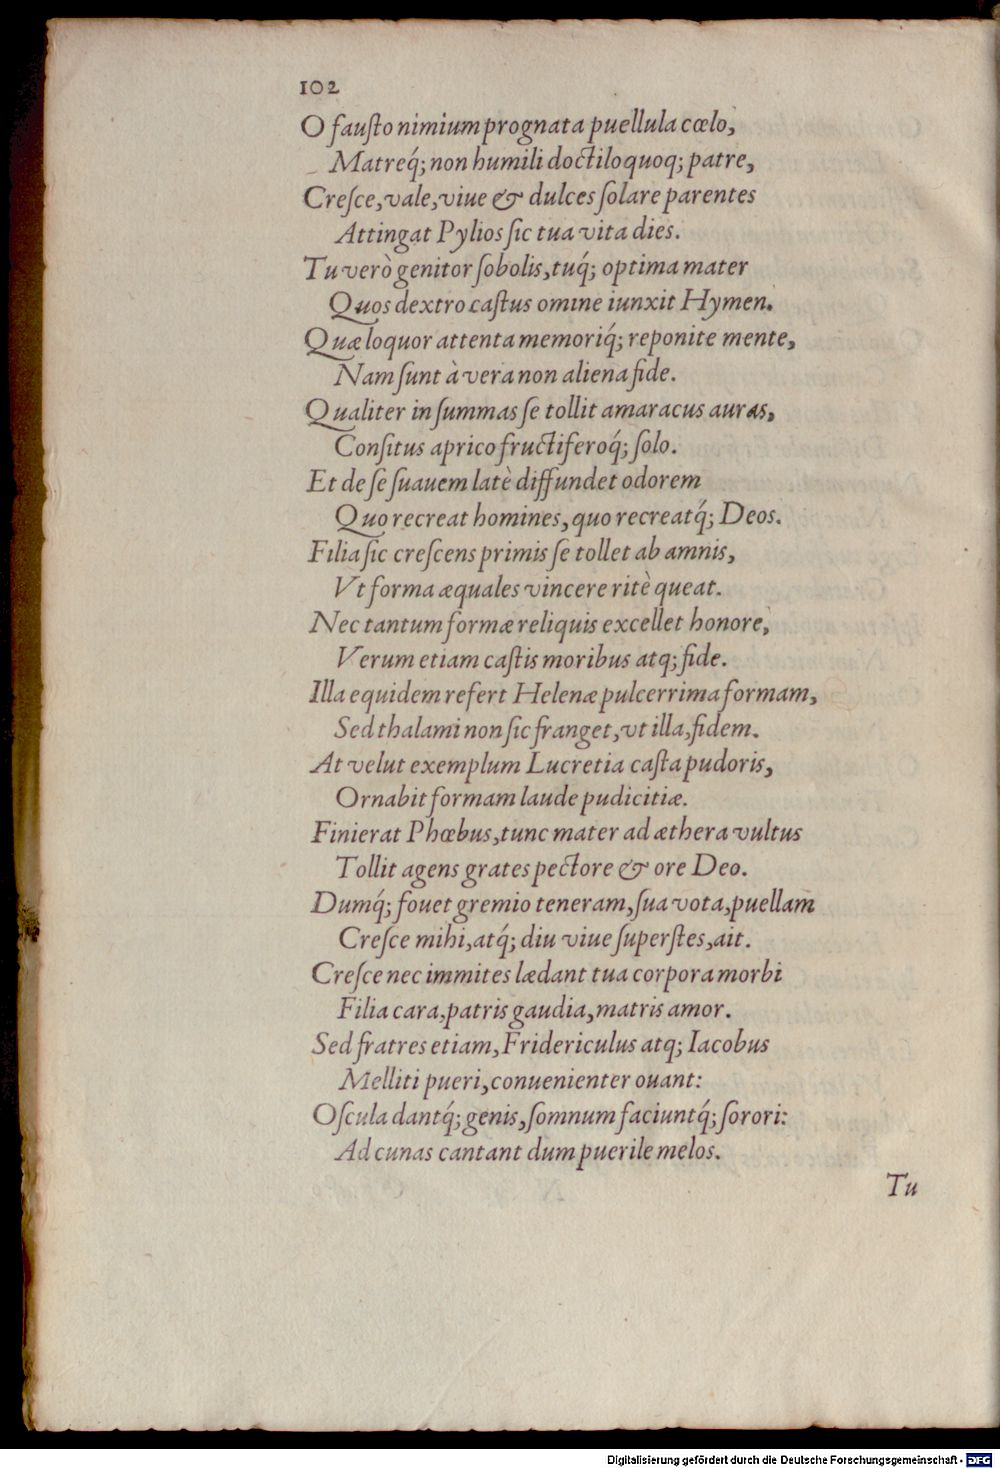 102
O fauſto nimium prognata puellula cœlo,
Matreq́; non humili doctiloquoq; patre,
Creſce, vale, viue & dulces ſolare parentes
Attingat Pylios ſic tua vita dies.
Tu verò genitor ſobolis, tuq́; optima mater
Quos dextro caſtus omine iunxit Hymen.
Quæ loquor attenta memoriq́; reponite mente,
Nam ſunt à vera non aliena fide.
Qualiter in ſummas ſe tollit amaracus auras,
Conſitus aprico fructiferoq́; ſolo.
Et de ſe ſuauem latè diffundet odorem
Quo recreat homines, quo recreatq́; Deos.
Filia ſic creſcens primis ſe tollet ab amnis,
Vt forma æquales vincere ritè queat.
Nec tantum formæ reliquis excellet honore,
Verum etiam caſtis moribus atq; fide.
Illa equidem refert Helenæ pulcerrima formam,
Sed thalami non ſic franget, vt illa, fidem.
At velut exemplum Lucretia caſta pudoris,
Ornabit formam laude pudicitiæ.
Finierat Phœbus, tunc mater ad æthera vultus
Tollit agens grates pectore & ore Deo.
Dumq́; fouet gremio teneram, ſua vota, puellam
Creſce mihi, atq́; diu viue ſuperſtes, ait.
Creſce nec immites lædant tua corpora morbi
Filia cara, patris gaudia, matris amor.
Sed fratres etiam, Fridericulus atq; Iacobus
Melliti pueri, conuenienter ouant:
Oſcula dantq́; genis, ſomnum faciuntq́; ſorori:
Ad cunas cantant dum puerile melos.
Tu
Digitalisierung gefördert durch die Deutsche Forschungsgemeinschaft - DFG